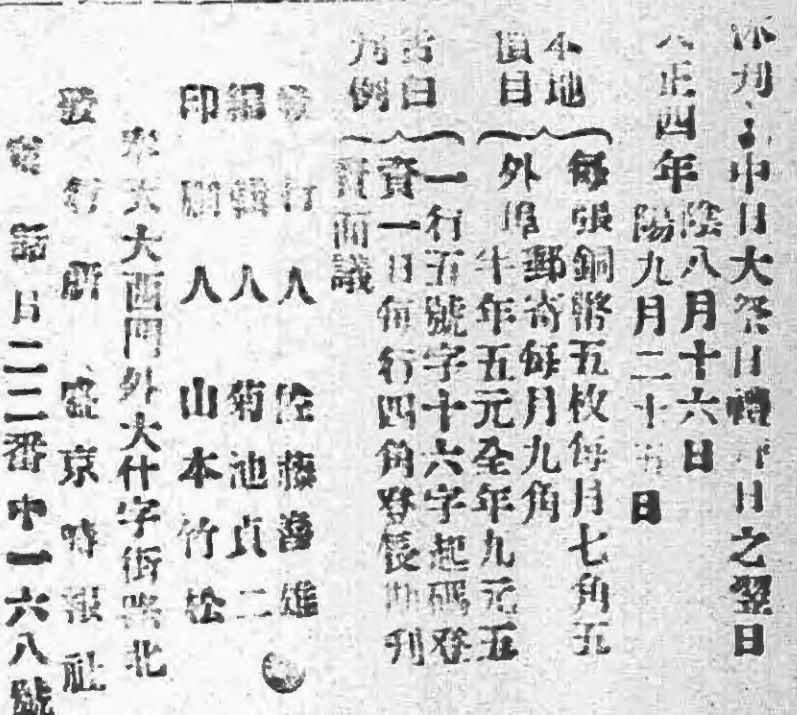 休刊 中日大祭日禮拜日之翌日
大正四年陰八月十六日
陽九月二十五日
本地價目
每張銅幣五枚每月七角五
外埠郵寄每月九角
半年五元全年九元五
告白刊例
一行五號字十六字起碼登
資一日每行四角登長期刊
資面議
發行人 佐藤善雄
編輯人 菊池貞二
印刷人 山本竹松
奉天大西門外大什字街路北
發行所 盛京時報社
電話日二二番中一六八號